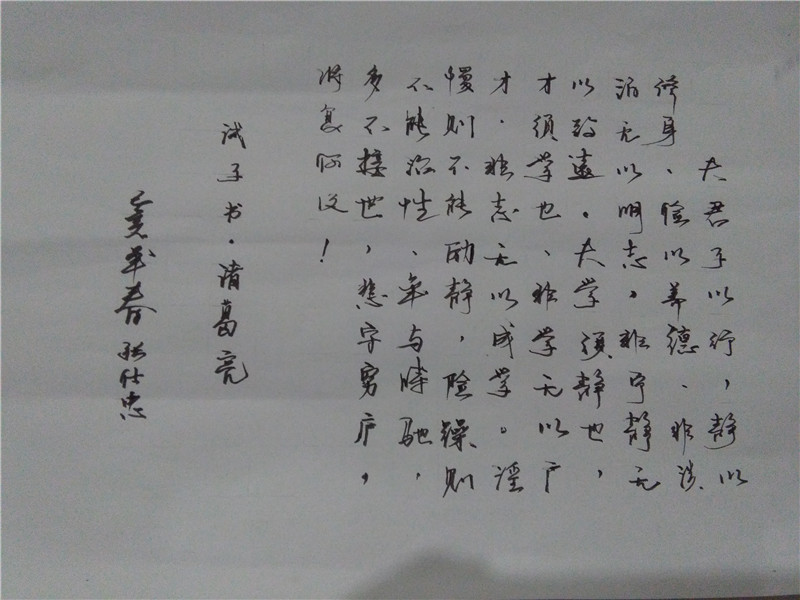 夫君子以行，静以
修身、俭以养德、非淡
泊无以明志，非宁静无
以致远。夫学须静也，
才须学也、非学无以广
才．非志无以成学。淫
慢则不能励静，险躁则
不能冶性、年与时驰．
多不接世，悲守穷庐，
将复何及！
诫子书·诸葛亮
亥年春 张仕忠